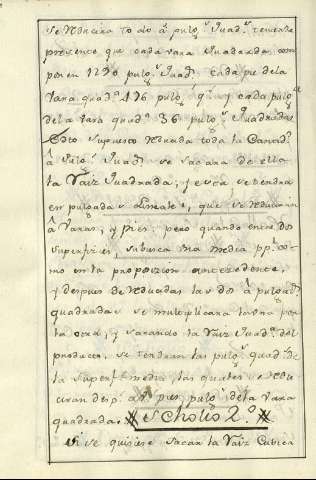 se Reducira todo a pulg.s quad.s teniendo
presente que cada vara quadrada com
ponen 1290 pulg.s quad.s cada pie de la
vara quad.a 476 pulg.s q.s y cada pulg.a
de la vara quad.a 36 pulg.s quadradas
Esto supuesto Reduzida toda la Cantid.d
â pulg.s quad.s se sacara de ella
la Raiz quadrada, y esta se tendra
en pulgadas Lineales, que se Reduciran
a varas, y pies; pero quando entre dos
superficies, se busca una media pp.l co-
mo en la proposizion antecedente,
y despues de Reducidas las dos â pulgad.s
quadradas se multiplicara la una por
la otra, y sacando la Raiz quad.a del
producto, se tendran las pulg.s quad.s de
la superf.e media, las quales se Redu
ciran desp.s a pies, pulg.s de la vara
quadrada. Scholio 2.o
Si se quisiere sacar la Raiz Cubica